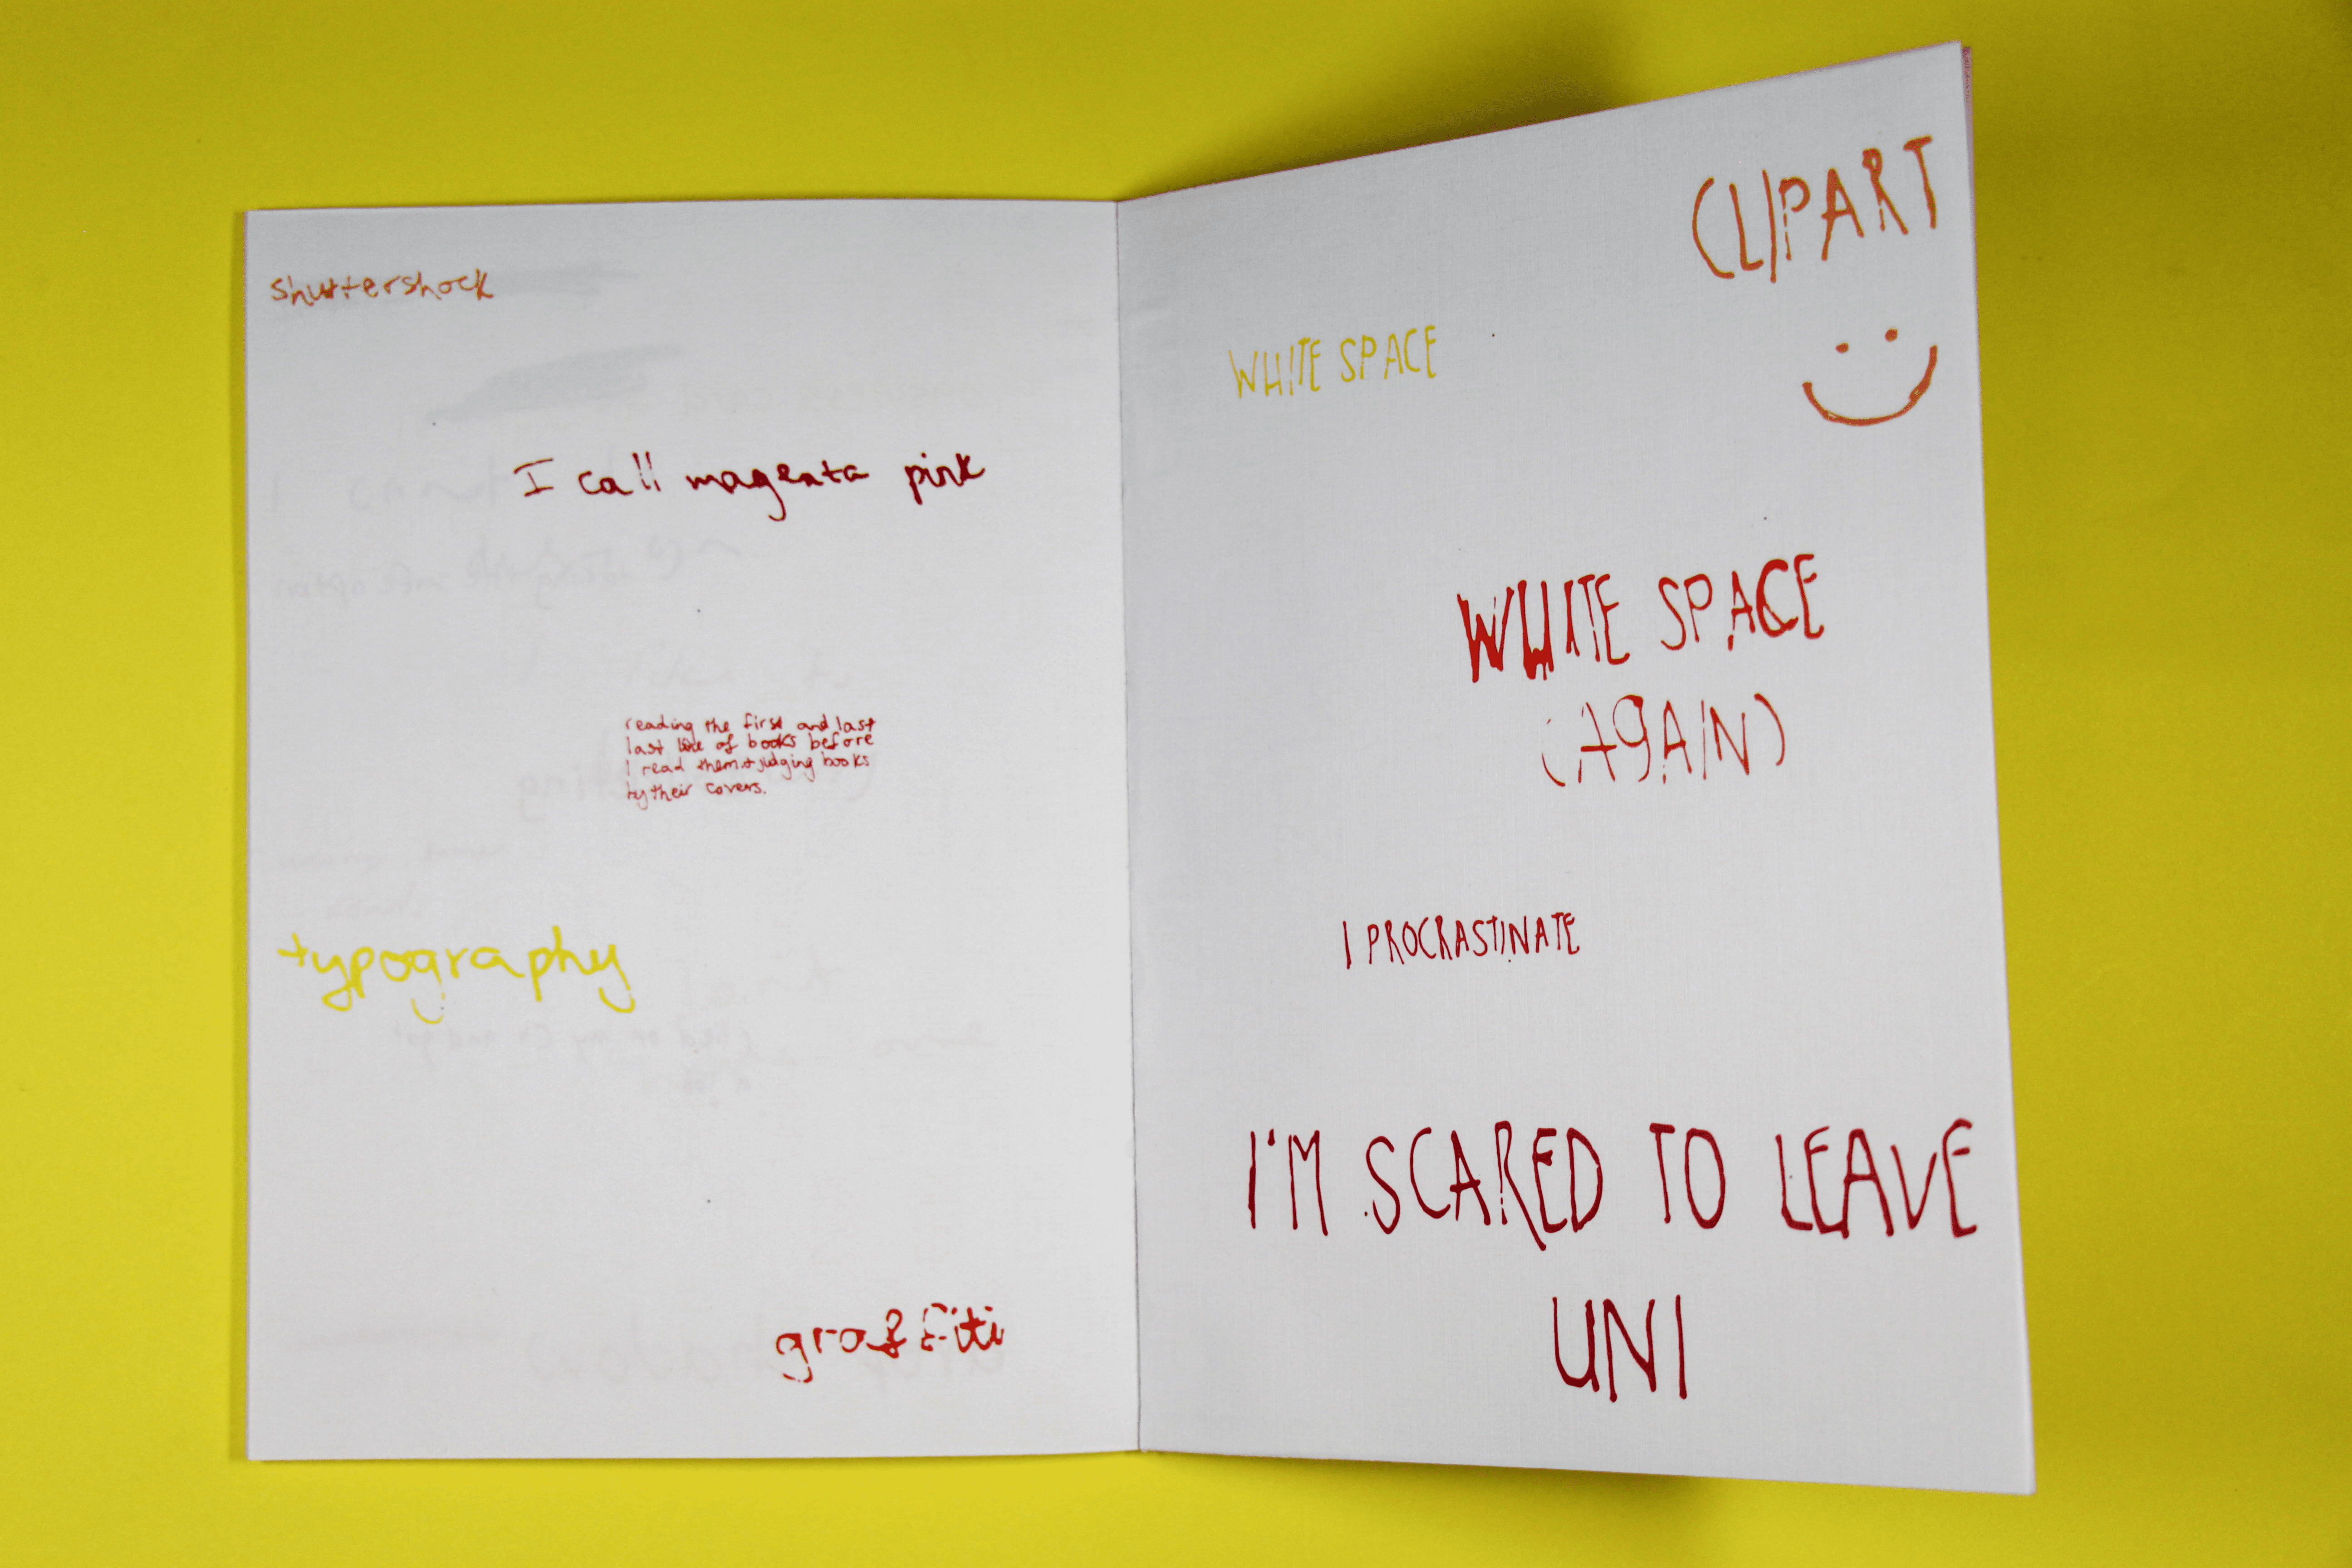 shuttershock
I call magenta pink
reading the first and last
last line of books before
I read them + judging books
by their covers.
typography
graffiti
CLIPART
WHITE SPACE
WHITE SPACE
(AGAIN)
I PROCRASTINATE
I'M SCARED TO LEAVE
UNI